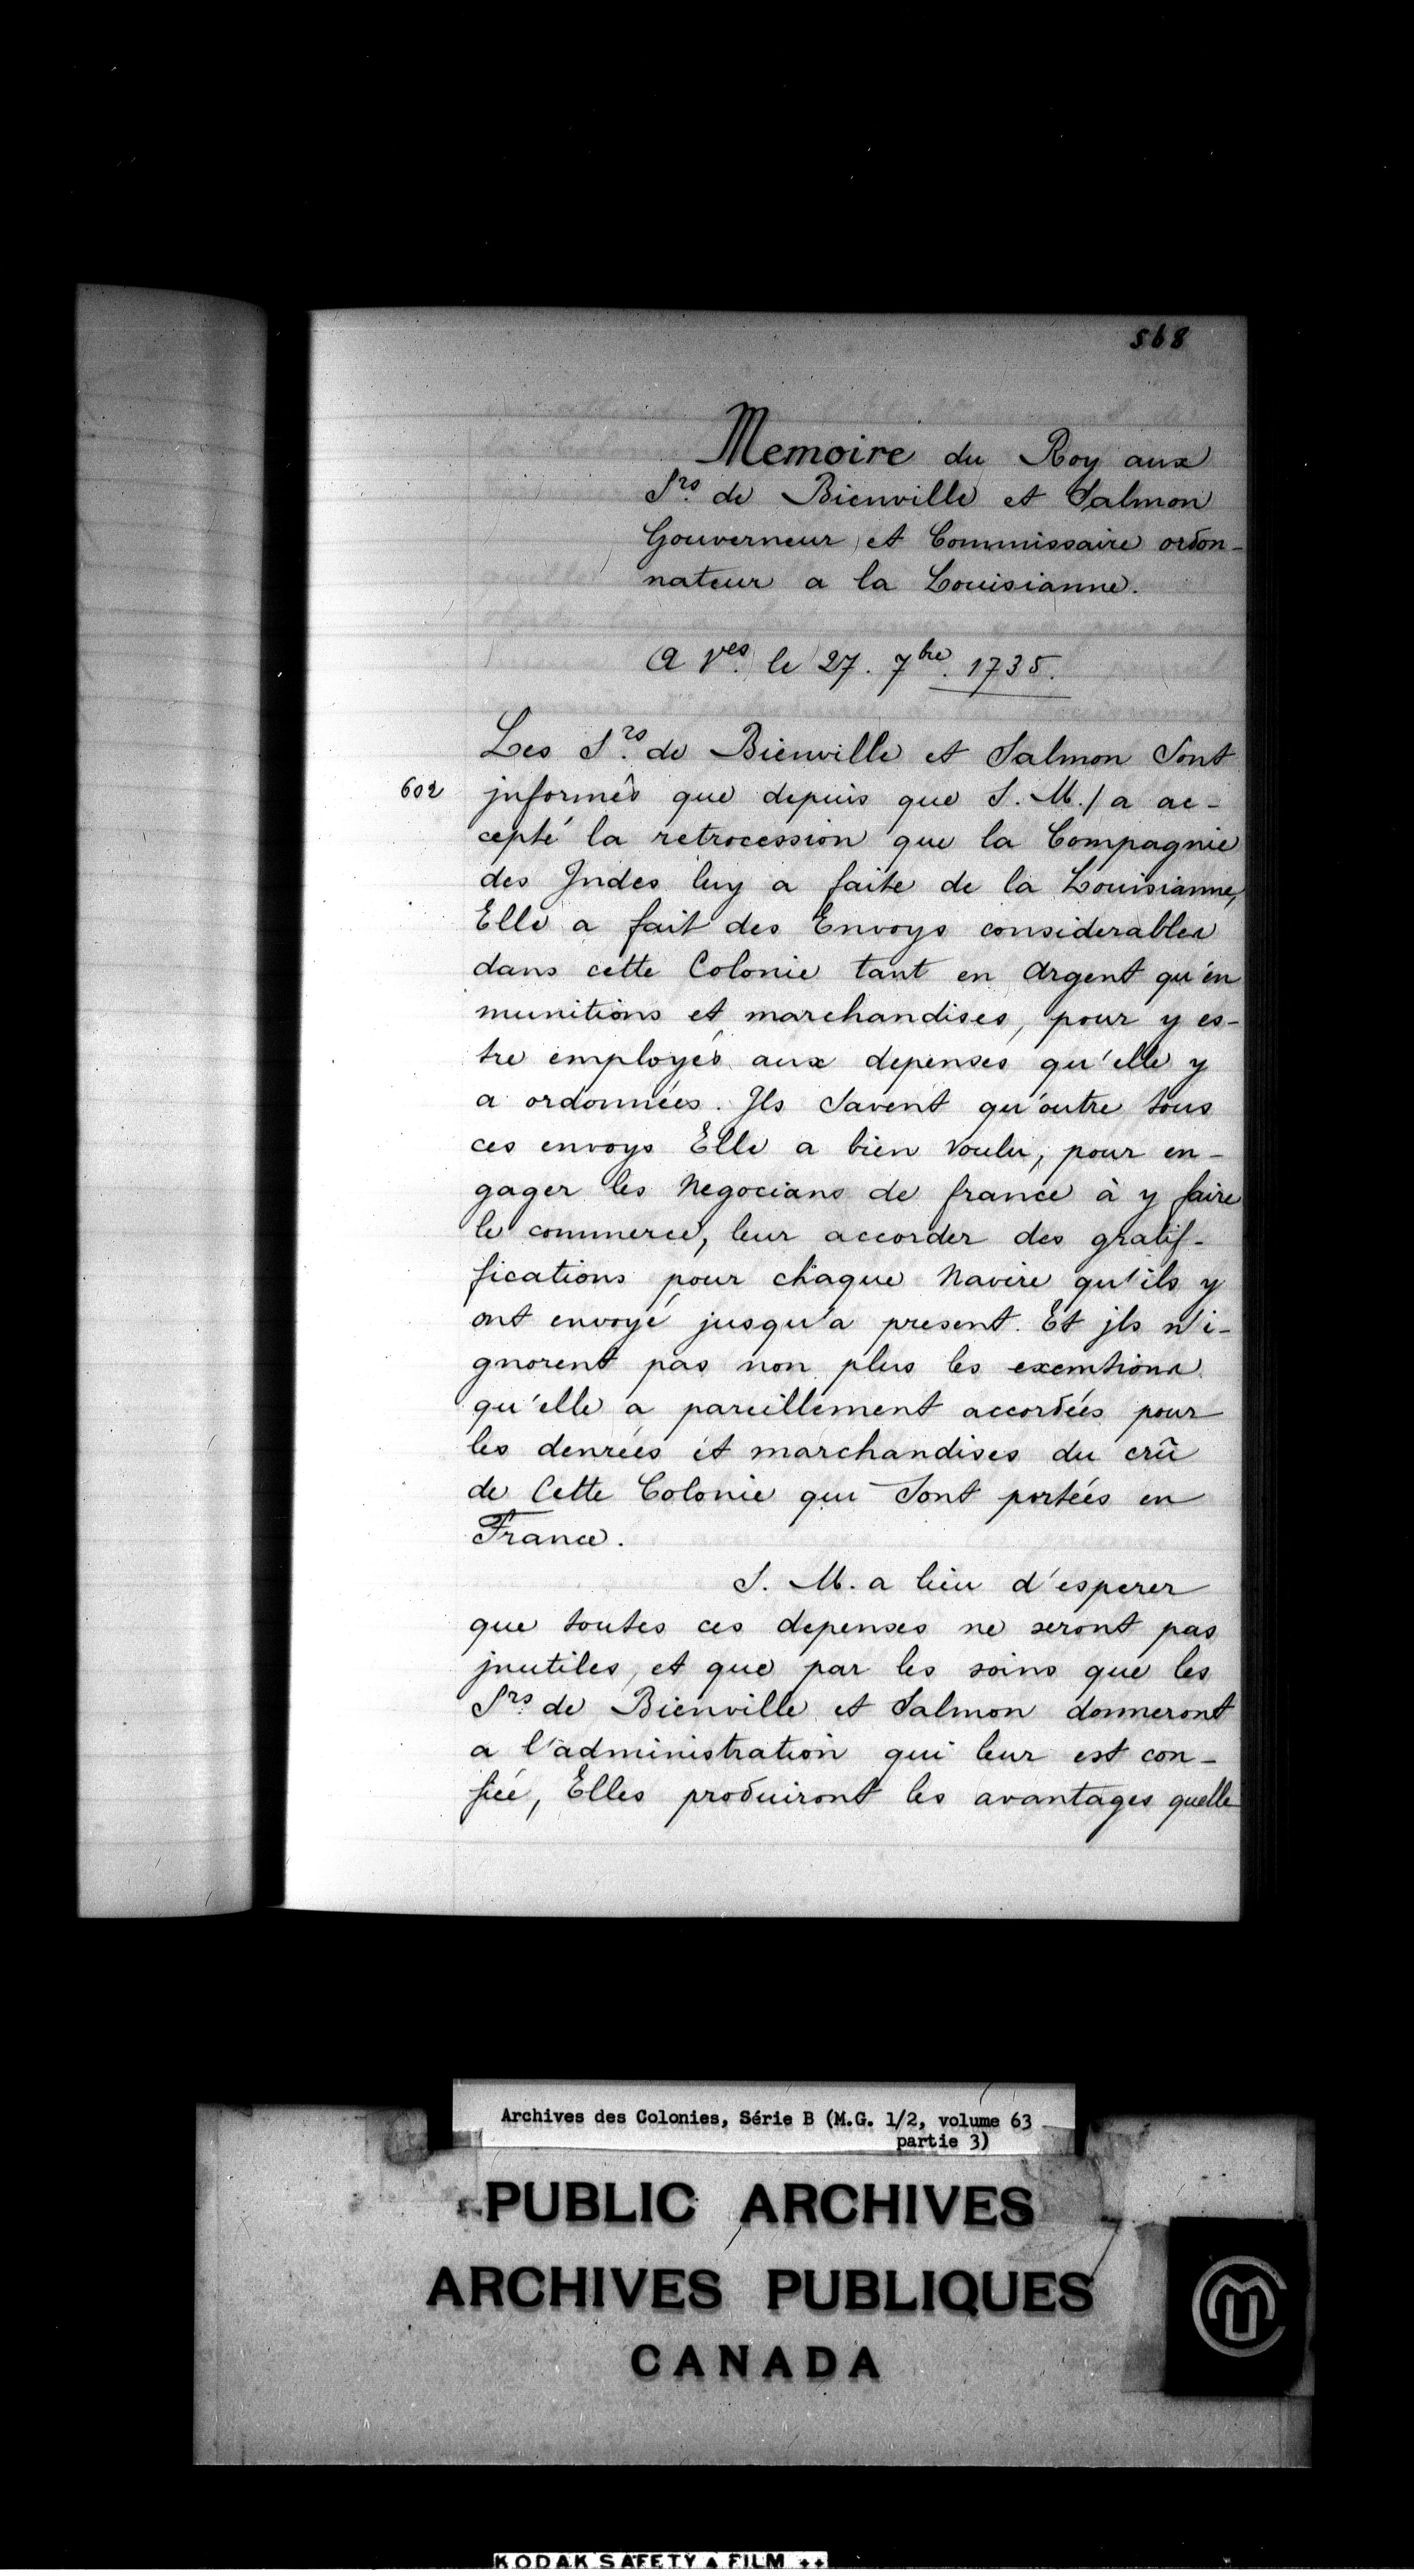 568
Memoire du Roy aux
Srs. de Bienville et Salmon
Gouverneur et Commissaire ordon-
nateur a la Louisianne.
A Ves. le 27. 7bre. 1735.
Les Srs. de Bienville et Salmon Sont
602 jnformés que depuis que S. M. / a ac-
cepté la retrocession que la Compagnie
des Jndes luy a faite de la Louisianne,
Elle a fait des Envoys considerables
dans cette Colonie tant en Argent qu'en
munitions et marchandises, pour y es-
tre employés aux depenses qu'elle y
a ordonnées. Jls Savent qu'outre tous
ces envoys Elle a bien voulu, pour en-
gager les Negocians de france à y faire
le commerce, leur accorder des gratif-
fications pour chaque Navire qu'ils y
ont envoyé jusqu'a present. Et jls n'i-
gnorent pas non plus les exemtions
qu'elle a pareillement accordées pour
les denrées et marchandises du crû
de Cette Colonie qui Sont portées en
France.
S. M. a lieu d'esperer
que toutes ces depenses ne seront pas
jnutiles, et que par les soins que les
Srs. de Bienville et Salmon donneront
a l'administration qui leur est con-
fiée, Elles produiront les avantages quelle
Archives des Colonies, Série B (M.G. 1/2, volume 63
partie 3)
PUBLIC ARCHIVES
ARCHIVES PUBLIQUES
CANADA
KODAK SAFETY ▲ FILM ++